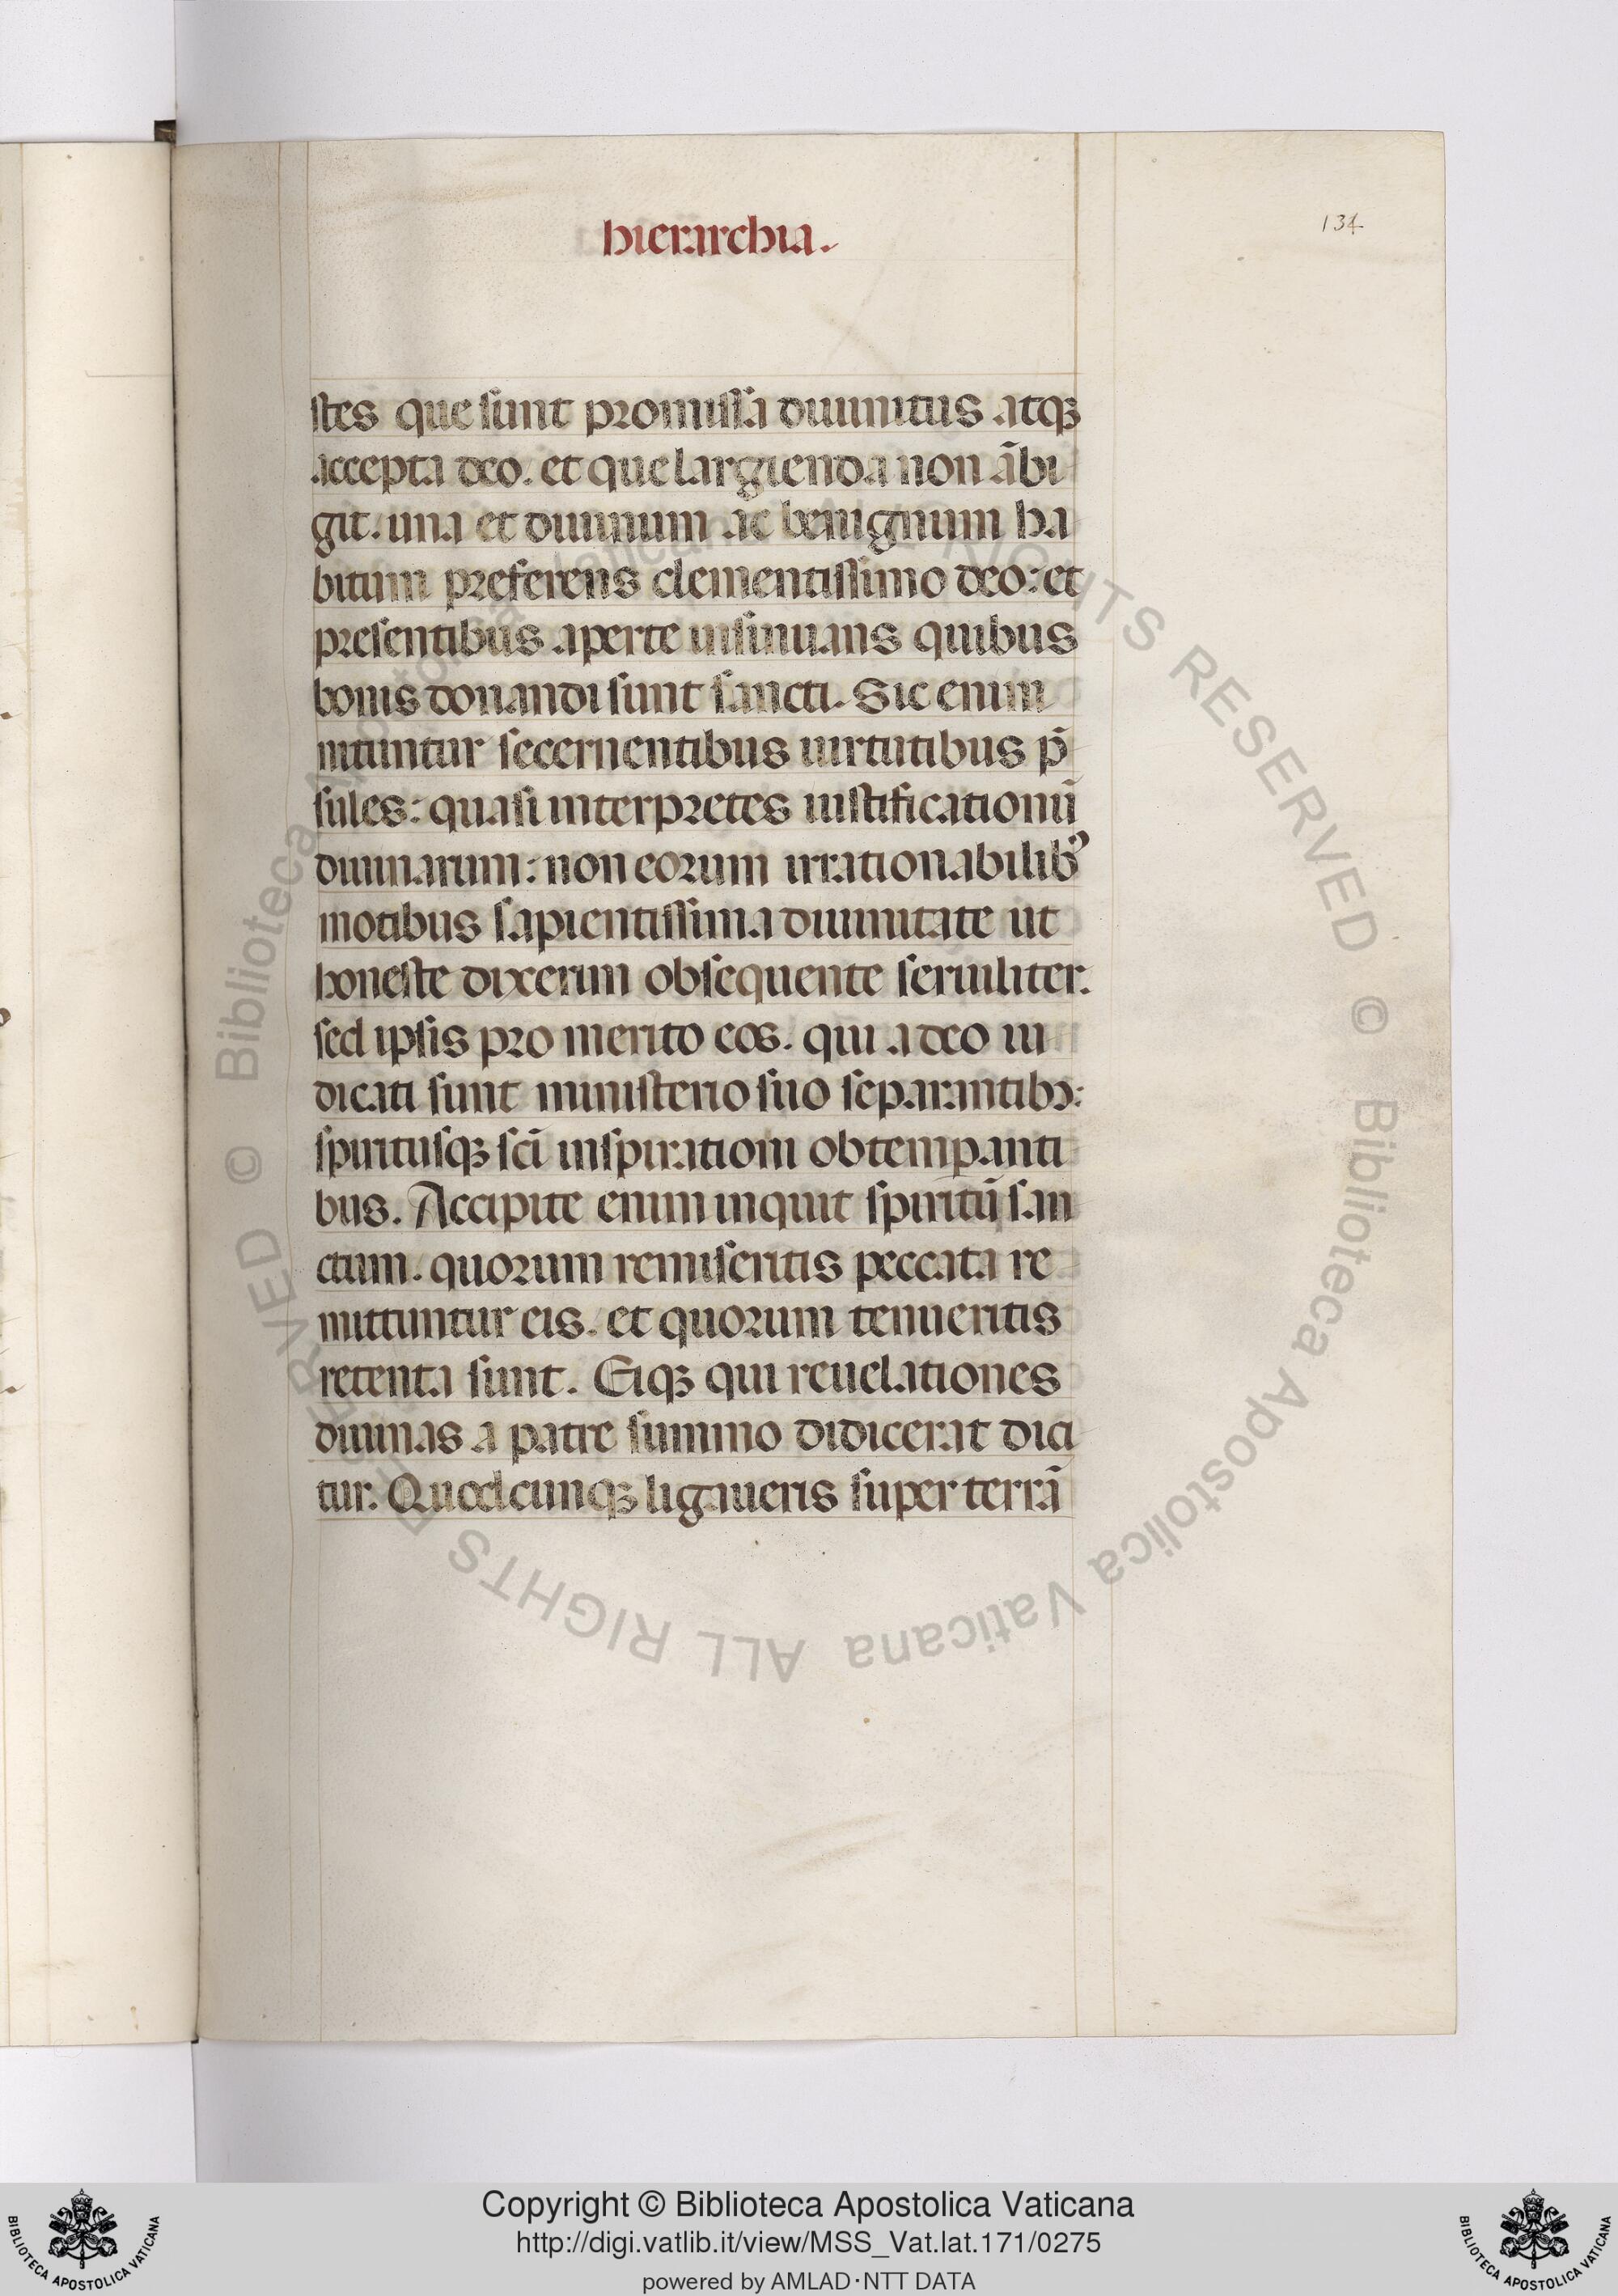 hierarchia.
134
stes que sunt promissa diuinitus atqꝫ
accepta deo. et que largienda non ābi
git. una et diuinum ac benignum ha
bitum preferens clementissimo deo: et
presentibus aperte insinuans quibus
bonis donandi sunt sancti. Sic enim
nituntur secernentibus uirtutibus p̄
sules: quasi interpretes iustificationū
diuinarum: non eorum irrationabilibꝰ
motibus sapientissima diuinitate ut
honeste dixerim obsequente seruiliter.
sed ipsis pro merito eos. qui a deo iu
dicati sunt ministerio suo separantibꝫ:
spiritusqꝫ sc̄i inspirationi obtemꝑanti
bus. Accipite enim inquit spiritū san
ctum. quorum remiseritis peccata re
mittuntur eis. et quorum tenueritis
retenta sunt. Eiqꝫ qui reuelationes
diuinas a patre summo didicerat dici
tur. Quodcunqꝫ ligaueris super terrā
© Biblioteca Apostolica Vaticana ALL RIGHTS RESERVED © Biblioteca Apostolica Vaticana ALL RIGHTS RESERVED
Copyright © Biblioteca Apostolica Vaticana
http://digi.vatlib.it/view/MSS_Vat.lat.171/0275
powered by AMLAD·NTT DATA
BIBLIOTECA APOSTOLICA VATICANA
BIBLIOTECA APOSTOLICA VATICANA